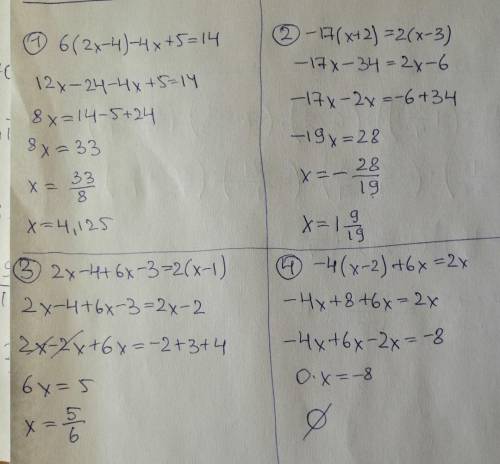 ① 6(2x-4)-4x+5=14
12x-24-4x+5=14
8x=14-5+24
8x=33
x=33/8
x=4,125
② -17(x+2)=2(x-3)
-17x-34=2x-6
-17x-2x=-6+34
-19x=28
x=-28/19
x=1 9/19
③ 2x-4+6x-3=2(x-1)
2x-4+6x-3=2x-2
2x-2x+6x=-2+3+4
6x=5
x=5/6
④ -4(x-2)+6x=2x
-4x+8+6x=2x
-4x+6x-2x=-8
0·x=-8
∅